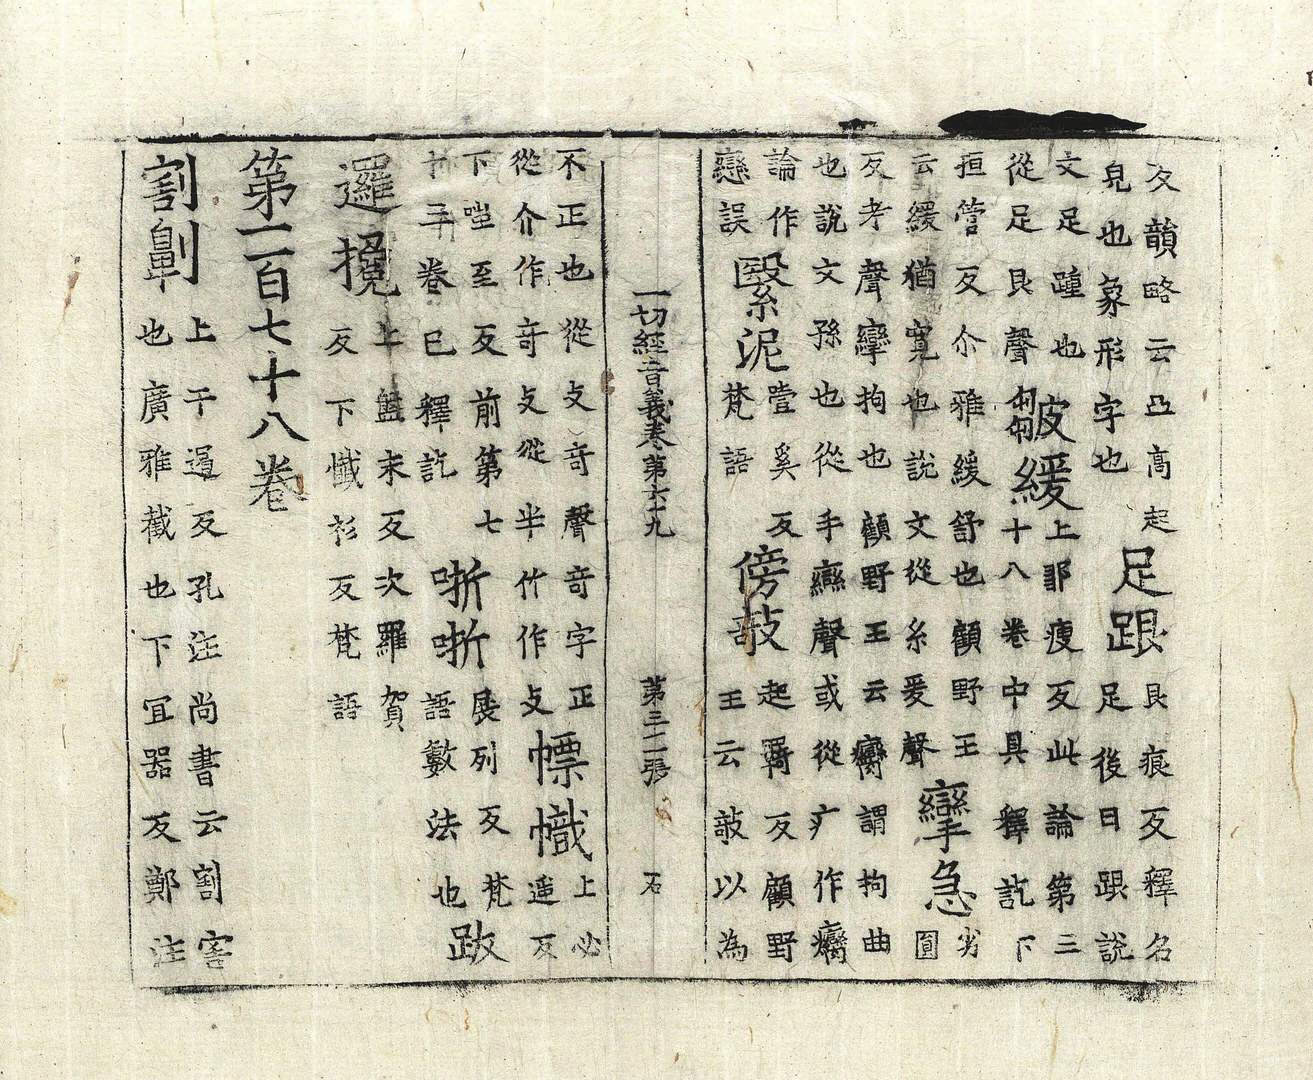 反韻略云凸高起
皃也象形字也
足跟
艮痕反釋名
足後曰跟說
文足踵也
從足艮聲
皺緩
上鄒瘦反此論第三
十八卷中具釋訖下
桓管反尒雅緩舒也顧野王
云緩猶寬也說文從糸爰聲
攣急
劣
圓
反考聲攣拘也顧野王云癵謂拘曲
也說文孫也從手䜌聲或從疒作癵
論作
戀誤
繄泥
壹奚反
梵語
傍敧
起羇反顧野
王云敧以為
一切經音義卷第六十九 第三十二張 石
不正也從攴奇聲奇字正
從介作奇攴從半竹作攴
幖幟
上必
遥反
下嗤至反前第七
十三卷已釋訖
哳哳
展列反梵
語數法也
跋
邏攙
上盤末反次羅賀
反下懺衫反梵語
第一百七十八卷
割劓
上干遏反孔注尚書云割害
也廣雅截也下冝器反鄭注